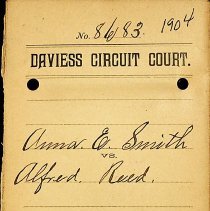 No. 8683. 1904
DAVIESS CIRCUIT COURT.
Anna E. Smith
VS.
Alfred. Reed.